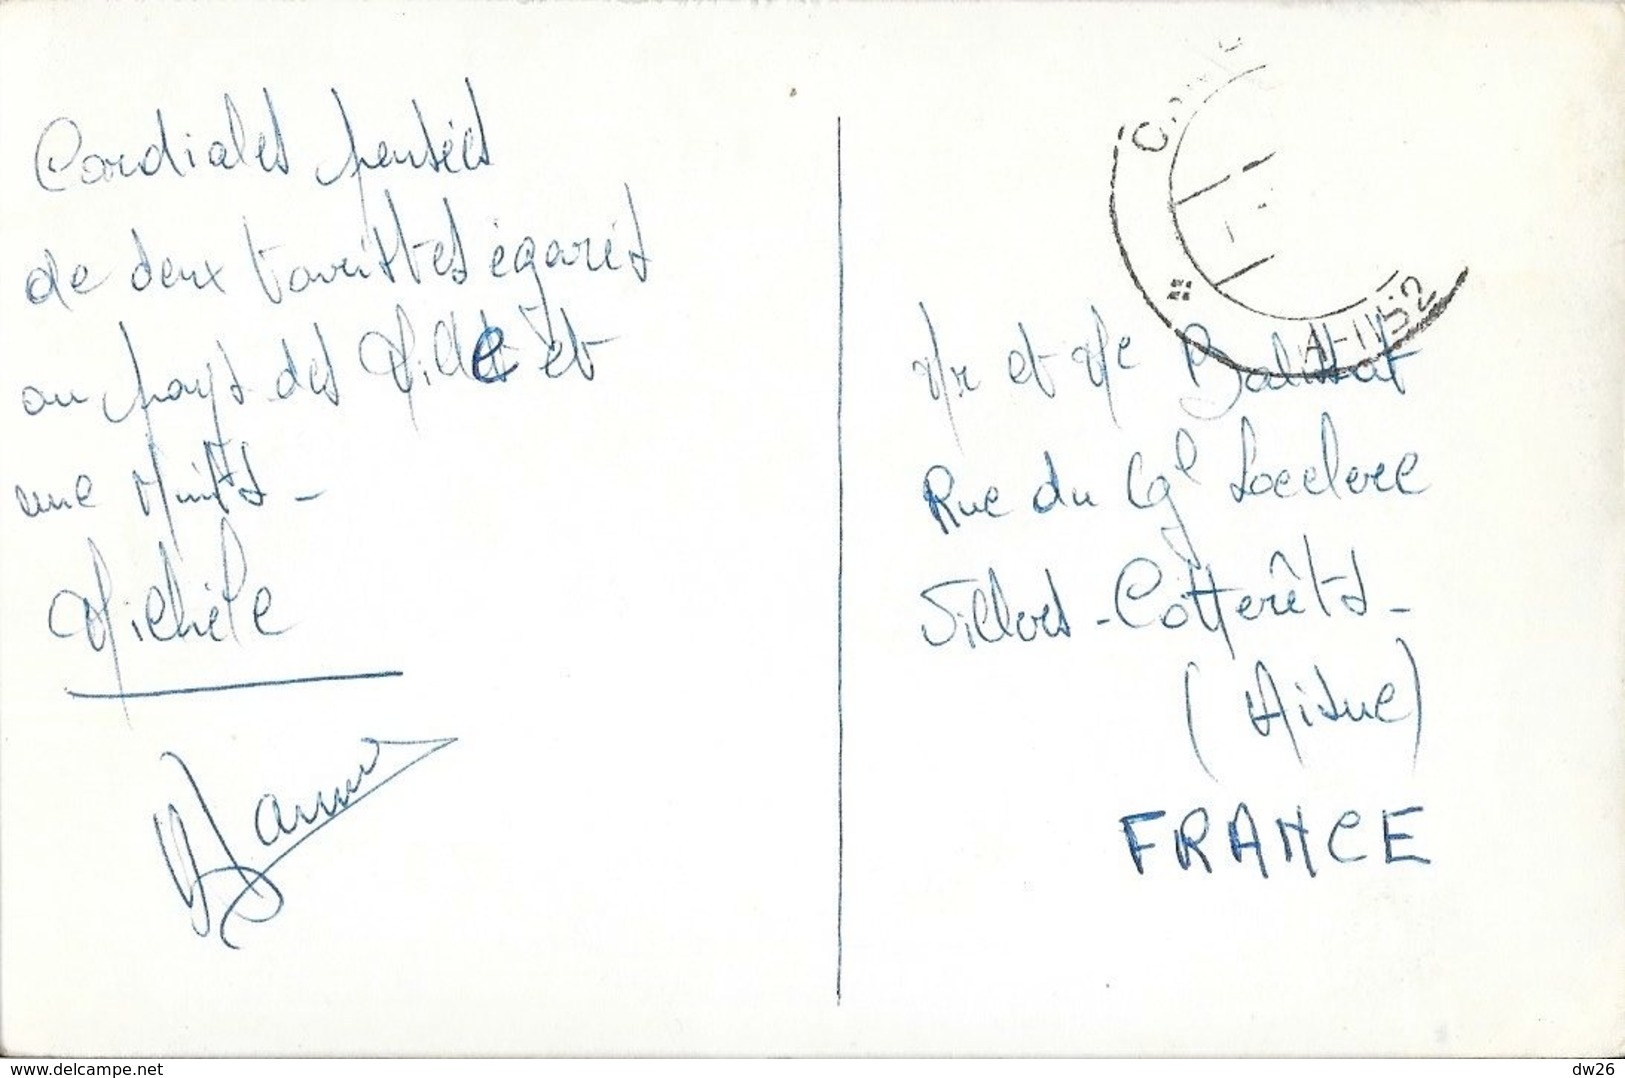 Cordiales pensées
de deux touristes égarés
au pays des Mille et
une Nuits -
Michèle
Mr et Me Balissat
Rue du Gal Leclerc
Villers-Cotterêts -
(Aisne)
FRANCE
www.delcampe.net
dw26